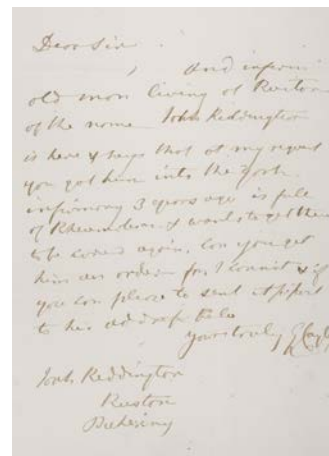 Dear Sir
And infirm
old man living at Ruston
of the name John Reddington
is here & says that at my request
you got him into the York
infirmary 3 years ago is full
of Rheumatism & wants to get there
to be cured again. Can you get
him an order for I cannot & if
you can please to send it
to his address below
Yours truly
John Reddington
Ruston